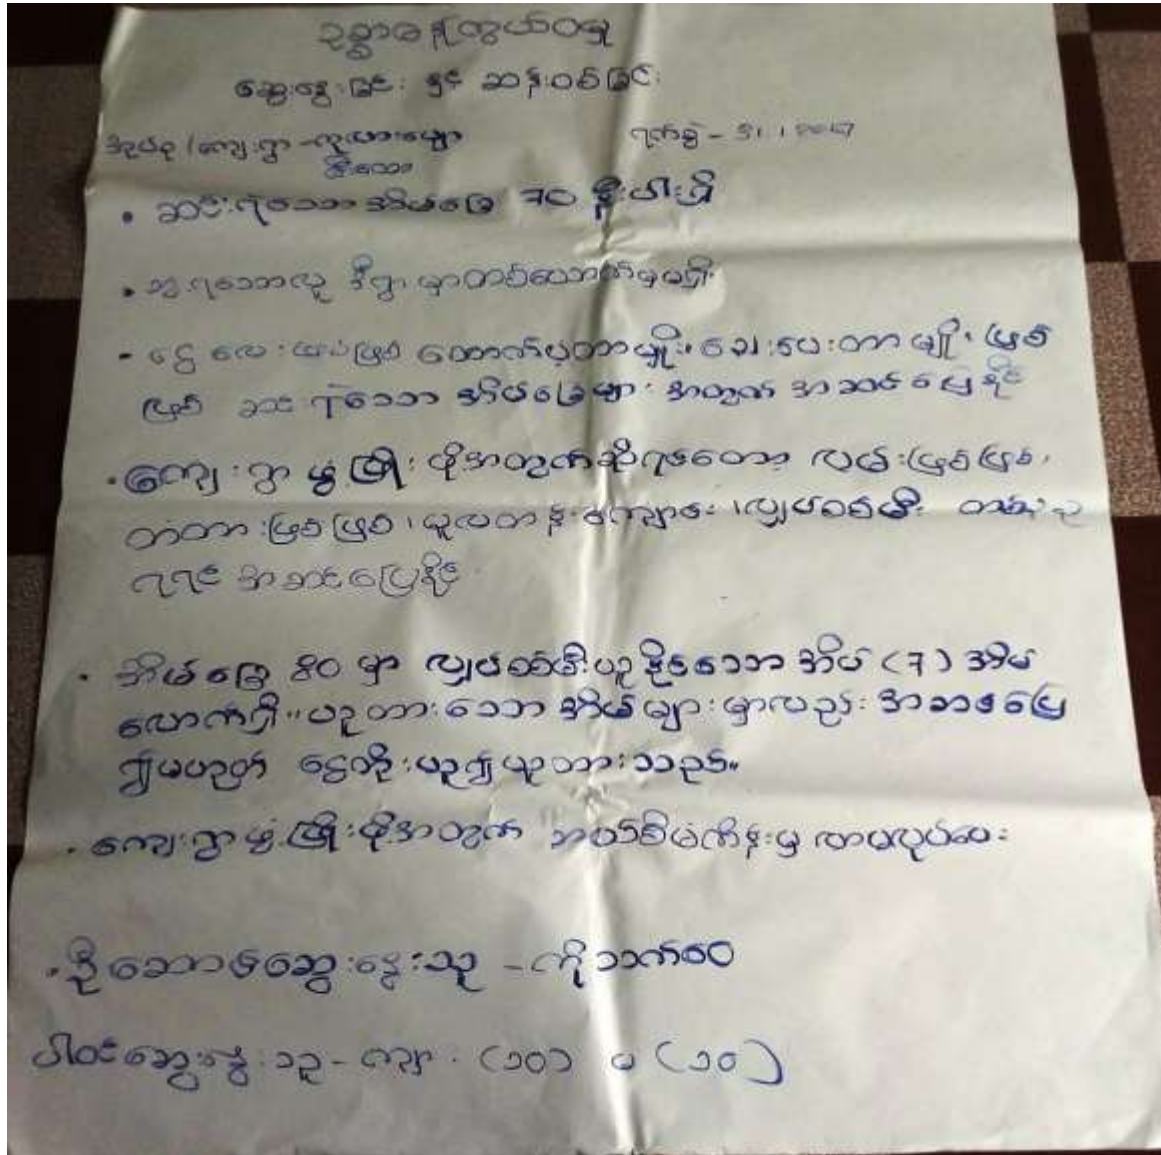 ဥစ္စာဓနကြွယ်ဝမှု
ဆွေးနွေးခြင်း နှင့် ဆန်းစစ်ခြင်း
အုပ်စု/ကျေးရွာ -
ရက်စွဲ - 31.1.2017
• ဆင်းရဲသောအိမ်ခြေ 70 ရာခိုင်နှုန်း
• ရသောလူ ဒီရွာမှာတစ်ယောက်မှမရှိ
- ငွေချေးယူပြီး ထောက်ပံ့တာမျိုး၊ ချေးပေးတာမျိုး ဖြစ်
ဖြစ် ဆင်းရဲသော အိမ်ခြေများ အတွက် အဆင်ပြေနိုင်
• ကျေးရွာ ဖွံ့ဖြိုး ဖို့အတွက်ဆိုရင်တော့ လမ်းဖြစ်ဖြစ်၊
တံတားဖြစ်ဖြစ်၊ မူလတန်းကျောင်း၊ လျှပ်စစ်မီး
ရရင် အဆင်ပြေနိုင်
• အိမ်ခြေ 80 မှာ လျှပ်စစ်မီးယူနိုင်သော အိမ် (7) အိမ်
လောက်ရှိ။ ယူထားသော အိမ်များမှာလည်း အဆင်ပြေ
၍မဟုတ် ငွေတိုးယူ၍ယူထားသည်။
• ကျေးရွာဖွံ့ဖြိုးဖို့အတွက် ဘယ်စီမံကိန်းမှ လာမလုပ်သေး
• ဦးဆောင်ဆွေးနွေးသူ - ကိုသက်ဝေ
ပါဝင်ဆွေးနွေးသူ - ကျား (၁၀) မ (၁၀)